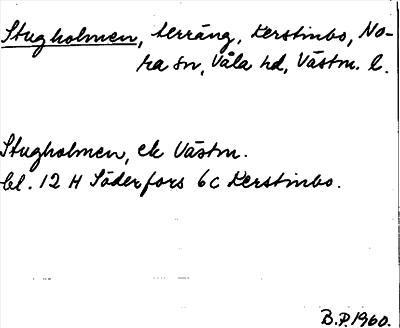 Stugholmen, terräng, Kerstinbo, No-
ra sn, Våla hd, Västm. l.
Stugholmen, ek Västm.
bl. 12 H Söderfors 6c Kerstinbo.
B.P. 1960.